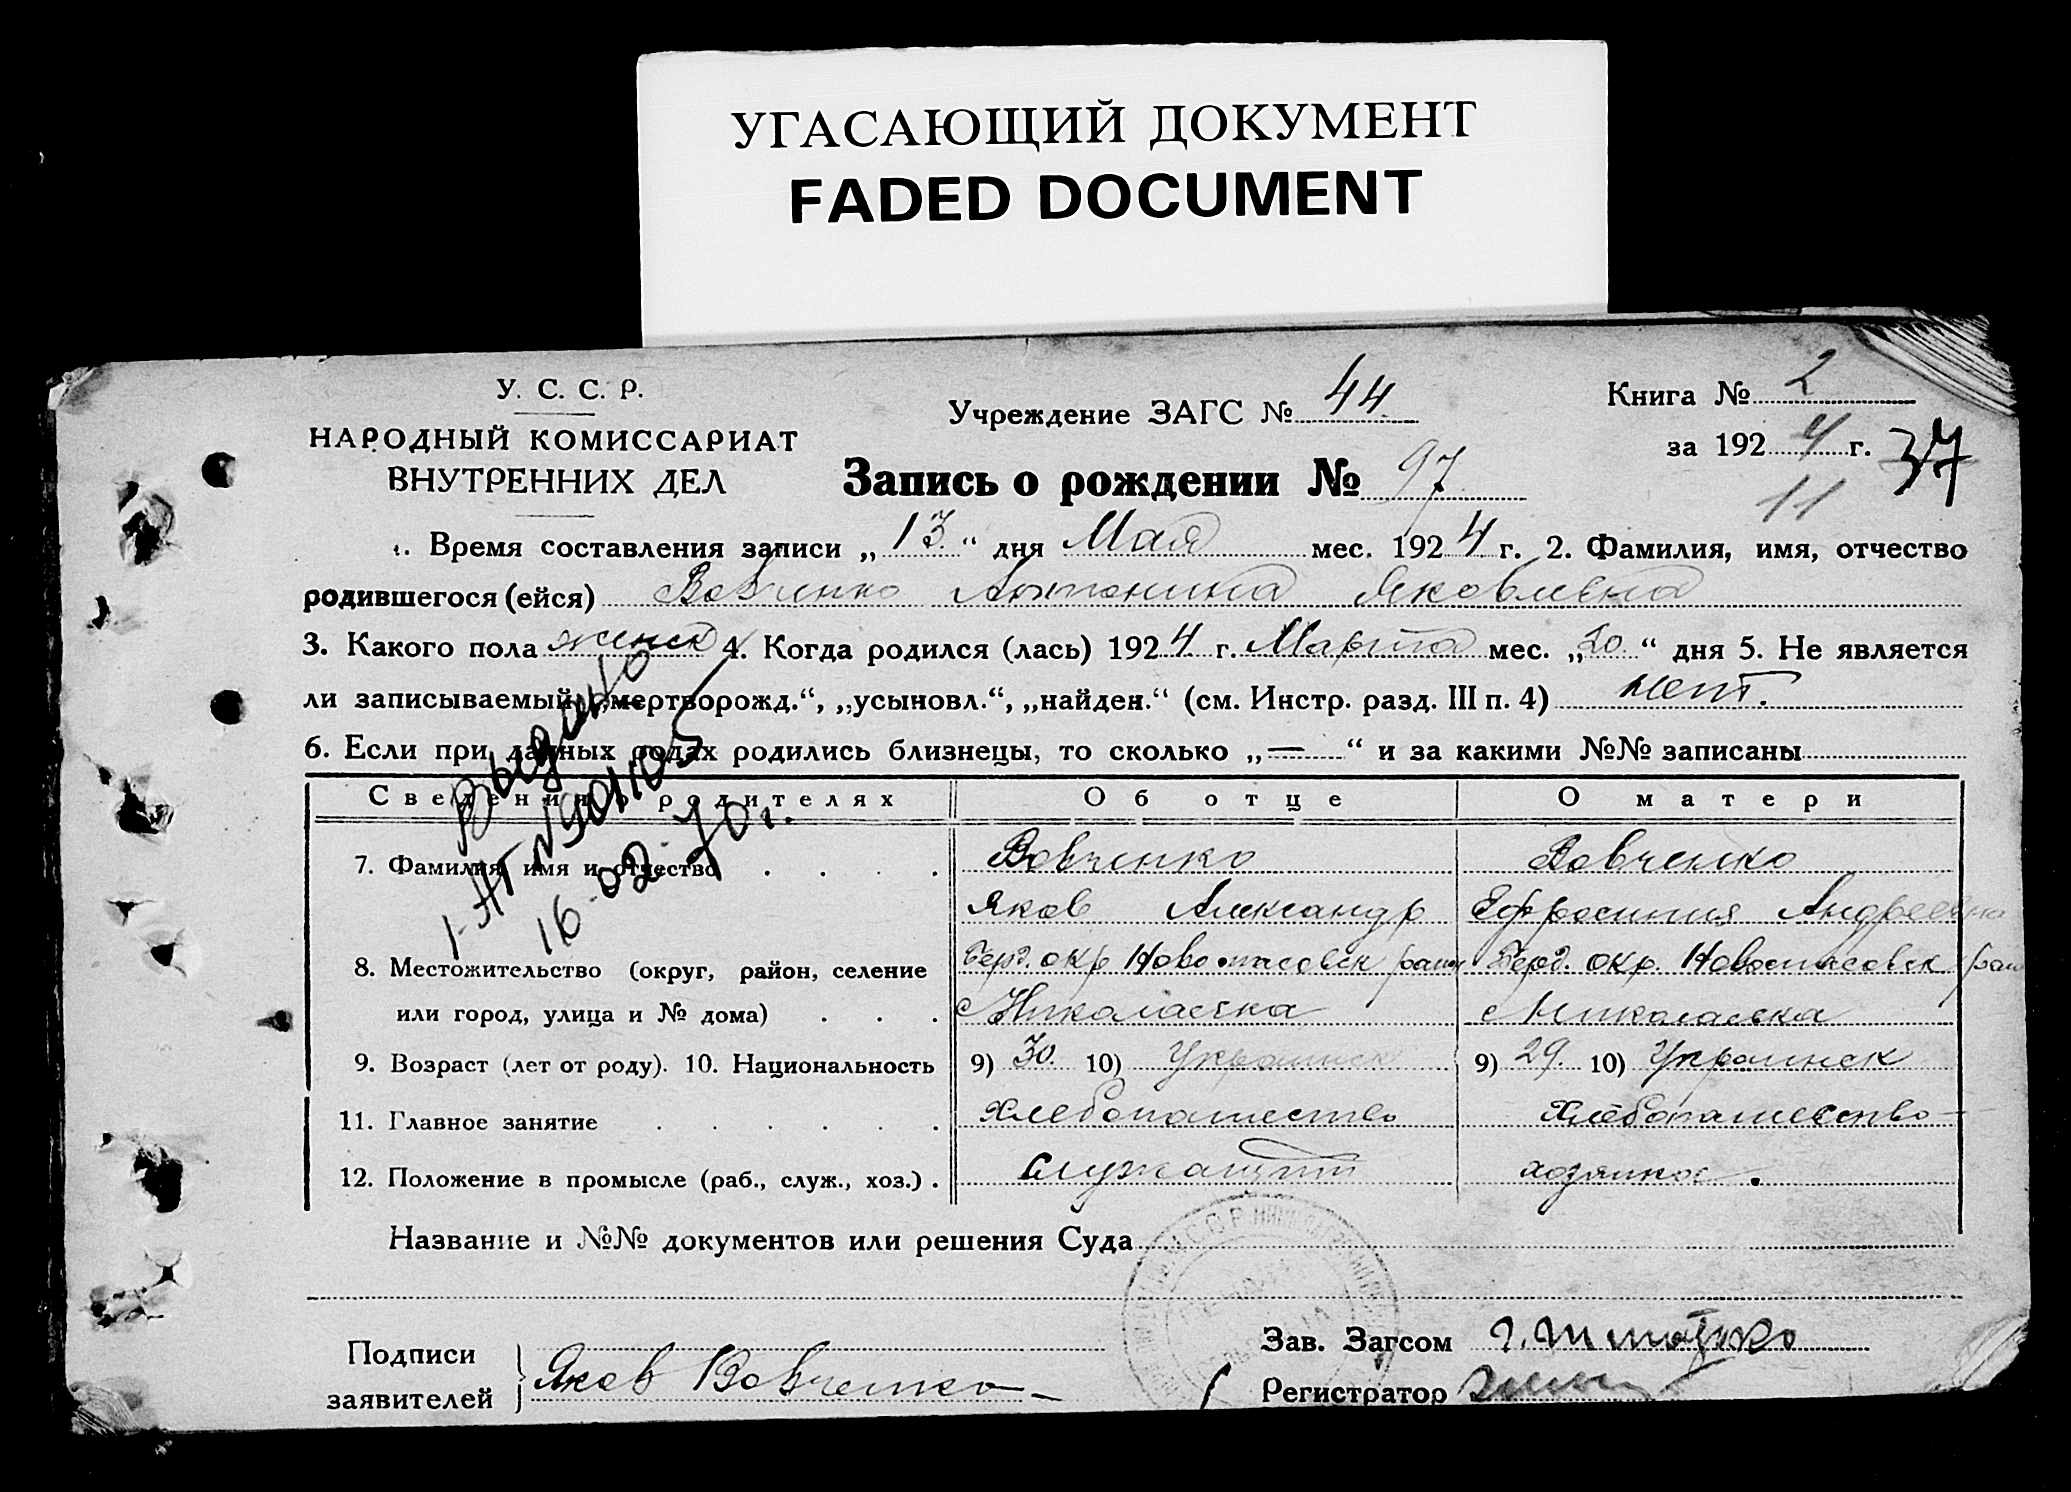 УГАСАЮЩИЙ ДОКУМЕНТ
FADED DOCUMENT
У. С. С. Р.
НАРОДНЫЙ КОМИССАРИАТ
ВНУТРЕННИХ ДЕЛ
Учреждение ЗАГС № 44
Книга № 2
за 1924 г. 37
11
Запись о рождении № 97
1. Время составления записи „13“ дня Мая мес. 1924 г. 2. Фамилия, имя, отчество
родившегося (ейся) Вовченко Антонина Яковлевна
3. Какого пола женск 4. Когда родился (лась) 1924 г. Марта мес. „20“ дня 5. Не является
ли записываемый „мертворожд.“, „усыновл.“, „найден.“ (см. Инстр. разд. III п. 4) нет.
6. Если при данных родах родились близнецы, то сколько „—“ и за какими №№ записаны
Выдано
16-02-70г.
Сведения о родителях Об отце О матери
7. Фамилия, имя и отчество . . . . Вовченко Вовченко
Яков Александр Ефросиния Андреевна
8. Местожительство (округ, район, селение Берд. окр Новоспасовск район Берд. окр. Новоспасовск рай
или город, улица и № дома) . . . с Николаевка с Николаевка
9. Возраст (лет от роду). 10. Национальность 9) 30. 10) Украинск 9) 29. 10) Украинск
11. Главное занятие . . . . . . хлебопашество хлебопашество
12. Положение в промысле (раб., служ., хоз.) . служащий
Название и №№ документов или решения Суда
Подписи
заявителей Яков Вовченко
Зав. Загсом
Регистратор